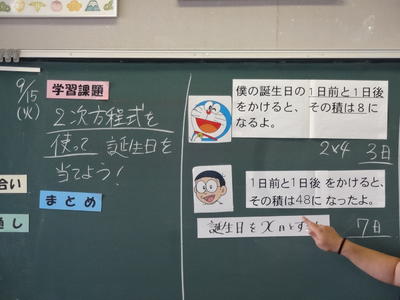 9/15
(火)
学習課題
2次方程式を
使って 誕生日を
当てよう!
まとめ
合い
通し
僕の誕生日の1日前と1日後
をかけると、その積は8に
なるよ。
2×4 3日
1日前と1日後 をかけると、
その積は48に なったよ。
誕生日をx日とす
7日